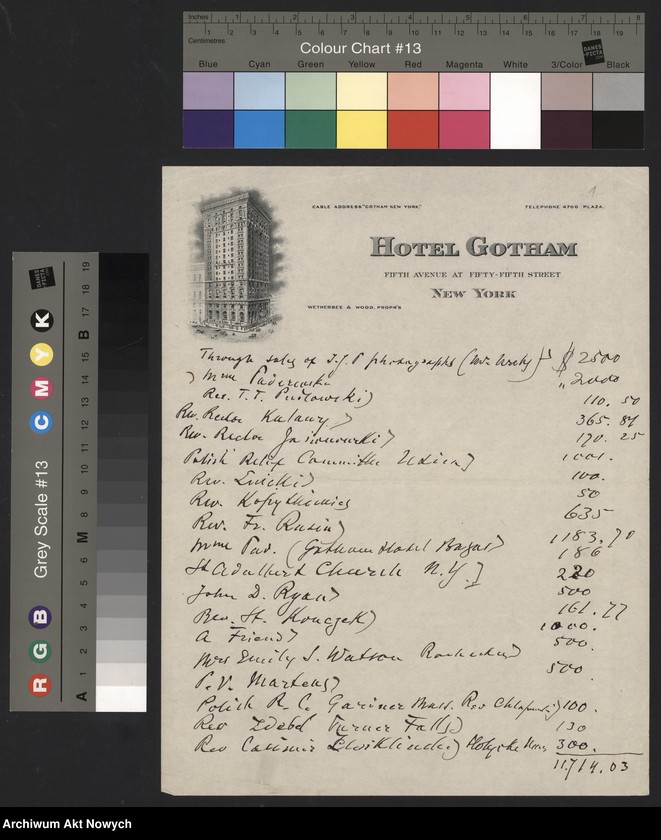 Inches 1 2 3 4 5 6 7 8
Centimetres 1 2 3 4 5 6 7 8 9 10 11 12 13 14 15 16 17 18 19
Colour Chart #13
DANES PICTA
Blue Cyan Green Yellow Red Magenta White 3/Color Black
Grey Scale #13
R G B C M Y K
A 1 2 3 4 5 6 M 8 9 10 11 12 13 14 15 B 17 18 19
1
CABLE ADDRESS "GOTHAM-NEW YORK" TELEPHONE 4700 PLAZA.
HOTEL GOTHAM
FIFTH AVENUE AT FIFTY-FIFTH STREET
NEW YORK
WETHERBEE & WOOD, PROPR'S
Through sales of I.J.P photographs $ 2500
Mme Paderewska " 2000
Rev. T.T. 110. 50
Rev. Rector 365. 84
Rev. Rector 170. 25
Polish Relief Committee Utica 1001.
Rev. 100.
Rev. 50
Rev. Fr. Rusin 635
Mme Pad. (Gotham Hotel Bazar) 1183.70
186
St Adalbert Church N.Y. 220
John D. Ryan 500
Rev. St. 161.77
A Friend 1000.
Mrs Emily S. Watson Rochester 500.
P.V. Martens 500.
Polish R. C. Gardner Mass. Rev 100.
Rev Turner Falls 130
Rev Casimir Holyoke 300.
11,714.03
Archiwum Akt Nowych